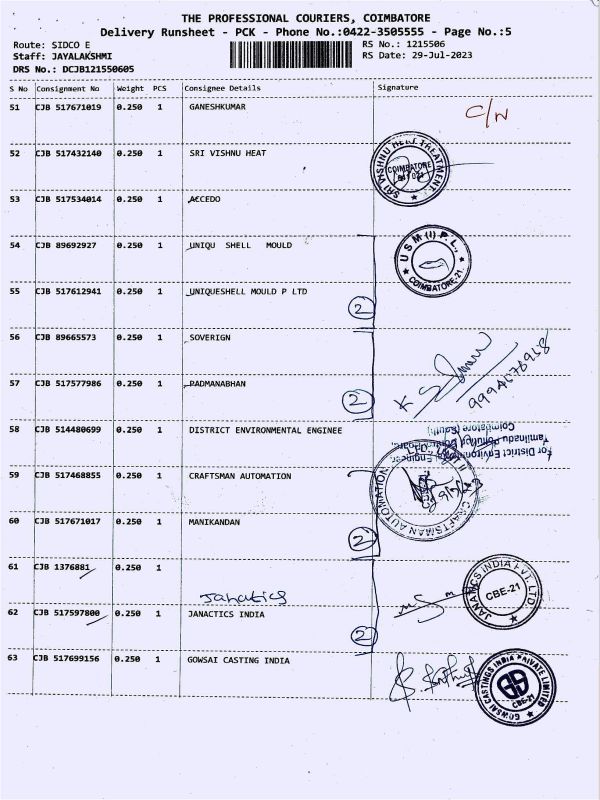 THE PROFESSIONAL COURIERS, COIMBATORE
Delivery Runsheet - PCK - Phone No.:0422-3505555 - Page No.:5
Route: SIDCO E RS No.: 1215506
Staff: JAYALAKSHMI RS Date: 29-Jul-2023
DRS No.: DCJB121550605
S No Consignment No Weight PCS Consignee Details Signature
51 CJB 517671019 0.250 1 GANESHKUMAR C/N
52 CJB 517432140 0.250 1 SRI VISHNU HEAT
SRI VISHNU HEAT TREATMENT
COIMBATORE
53 CJB 517534014 0.250 1 ACCEDO
54 CJB 89692927 0.250 1 UNIQU SHELL MOULD
U S M (I) P. L.,
COIMBATORE-21.
55 CJB 517612941 0.250 1 UNIQUESHELL MOULD P LTD
2
56 CJB 89665573 0.250 1 SOVERIGN
57 CJB 517577986 0.250 1 PADMANABHAN
2
58 CJB 514480699 0.250 1 DISTRICT ENVIRONMENTAL ENGINEE
For District Environmental Engineer,
Tamilnadu Pollution Control Board,
Coimbatore (South)
59 CJB 517468855 0.250 1 CRAFTSMAN AUTOMATION
CRAFTSMAN AUTOMATION
60 CJB 517671017 0.250 1 MANIKANDAN
2
61 CJB 1376881 0.250 1
Janatics
JANATICS INDIA PVT. LTD.
CBE-21
62 CJB 517597800 0.250 1 JANACTICS INDIA
2
63 CJB 517699156 0.250 1 GOWSAI CASTING INDIA
GOWSAI CASTINGS INDIA PRIVATE LIMITED
CBE-21